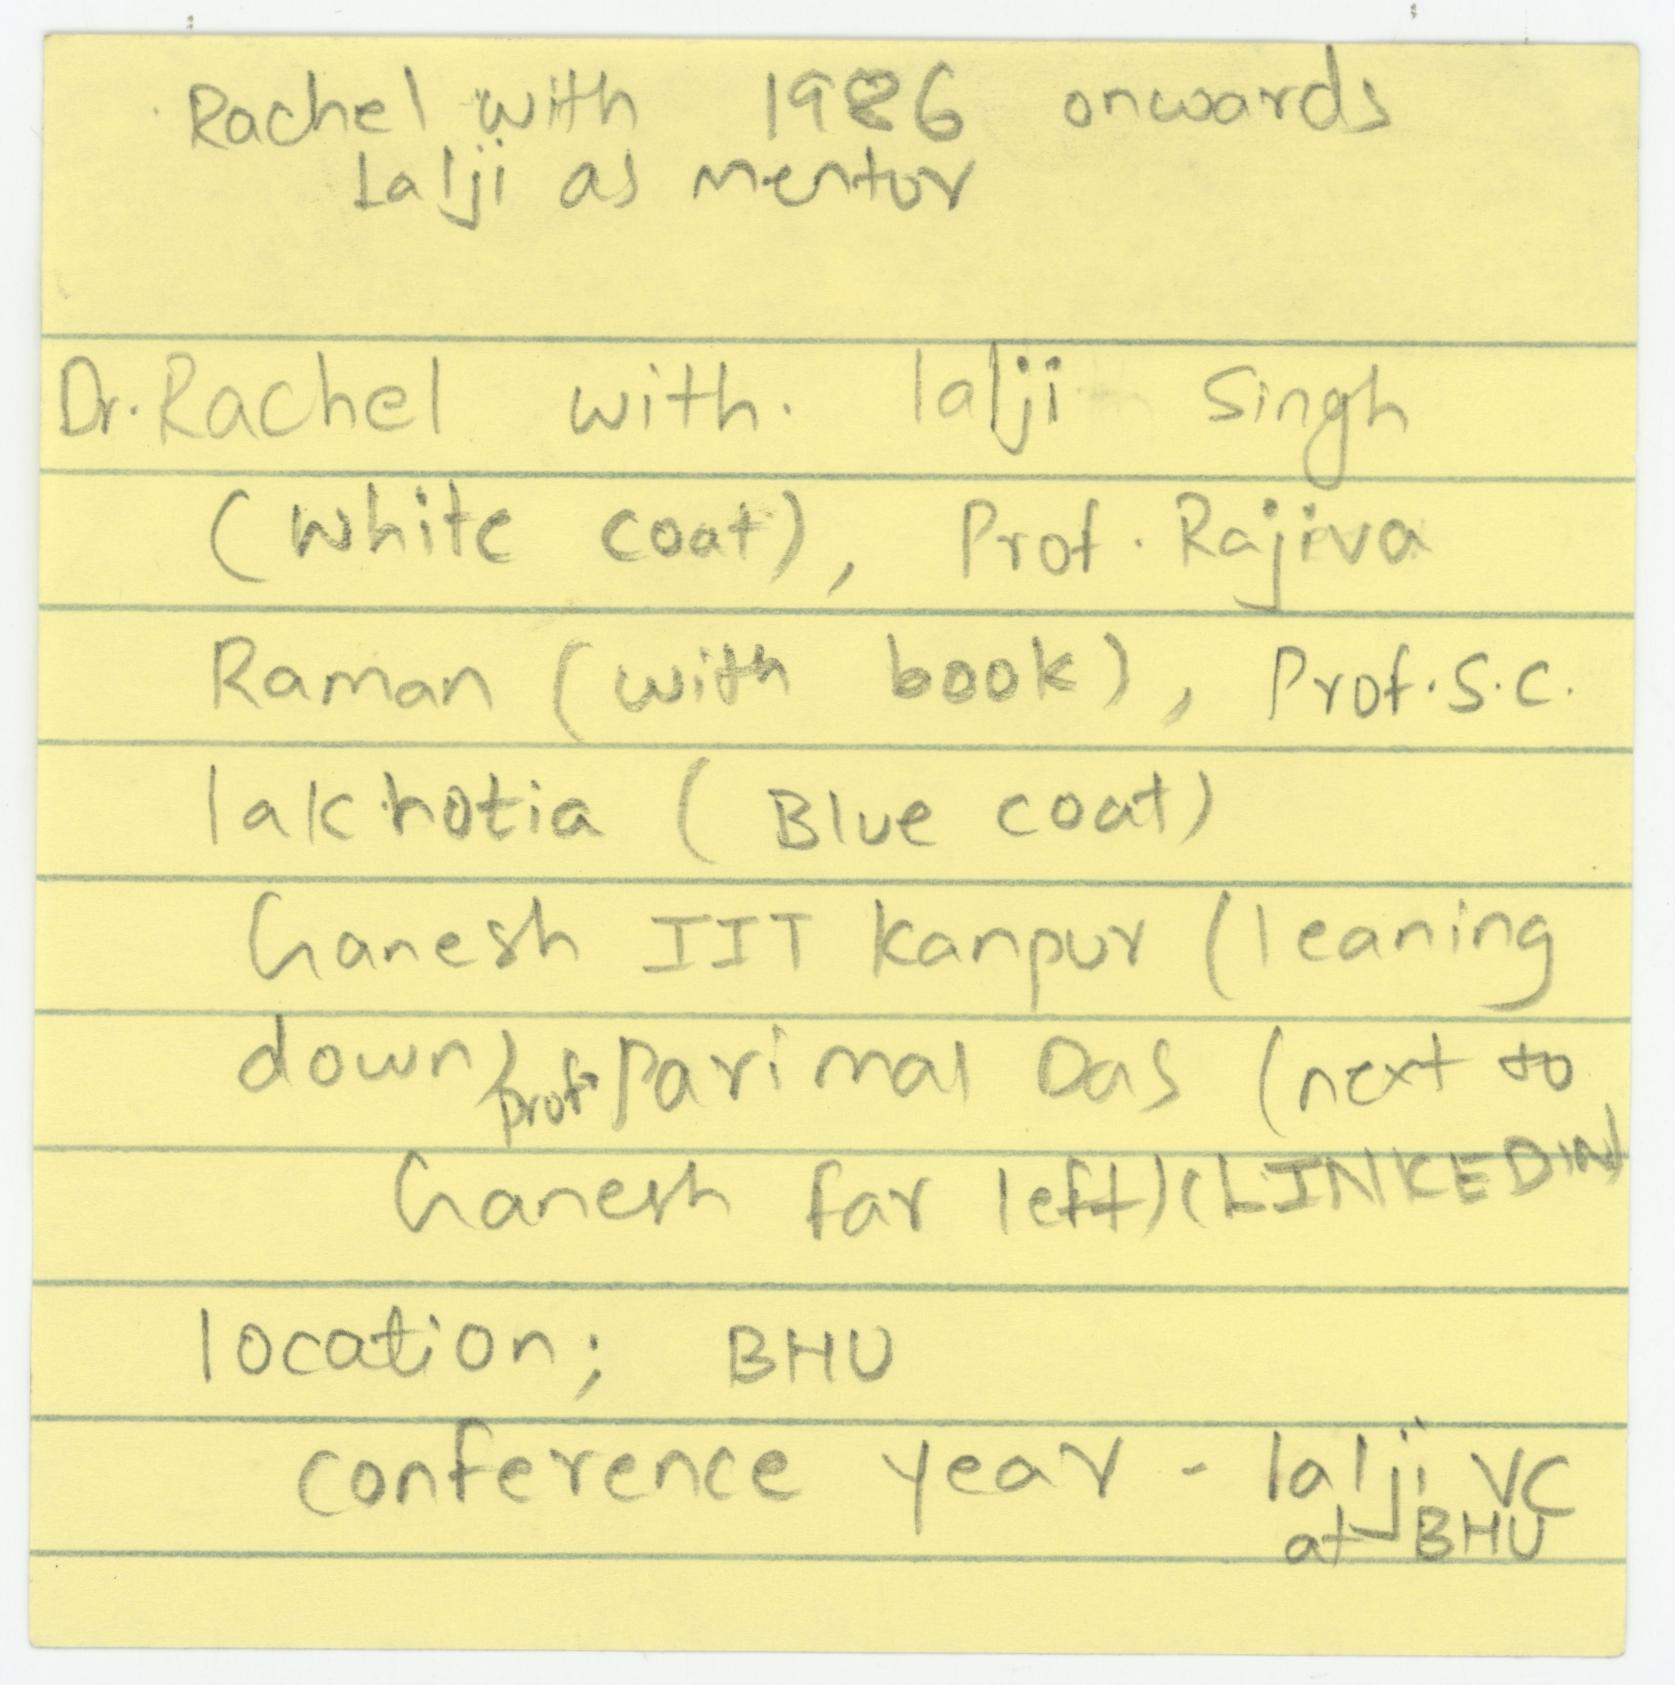 Rachel with 1986 onwards
Lalji as mentor
Dr. Rachel with. lalji Singh
(White coat), Prof. Rajiva
Raman (with book), Prof. S.C.
lakhotia (Blue coat)
Ganesh IIT Kanpur (leaning
down) prof. Parimal Das (next to
Ganesh far left) (LINKEDIN)
location; BHU
conference year - lalji VC
at BHU